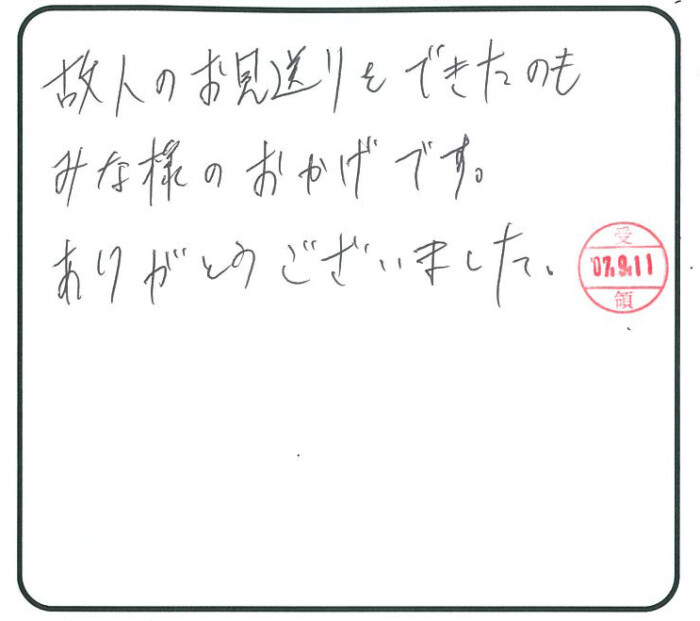 故人のお見送りをできたのも
みな様のおかげです。
ありがとうございました。
受
'07.9.11
領